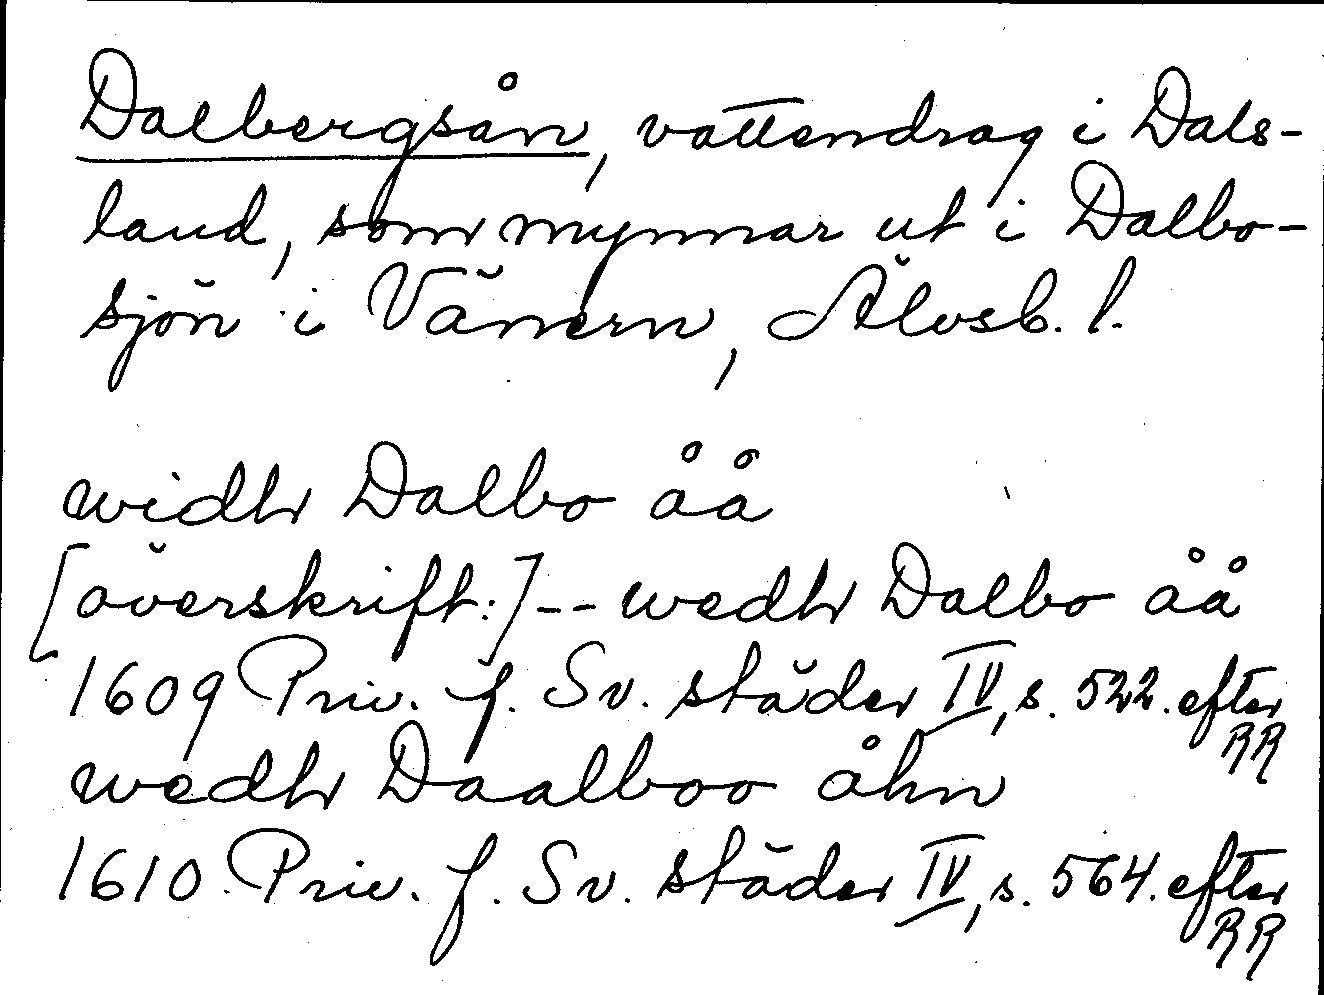 Dalbergsån, vattendrag i Dals-
land, som mynnar ut i Dalbo-
sjön i Vänern, Älvsb. l.
widh Dalbo åå
[överskift:] -- wedh Dalbo åå
1609 Priv. f. Sv. städer IV, s. 522. efter RR
wedh Daalboo åhn
1610 Priv. f. Sv. städer IV, s. 564. efter RR